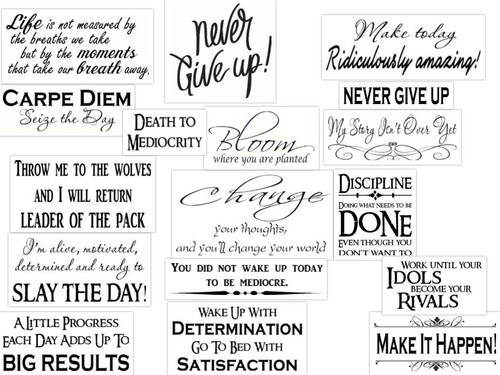 Life is not measured by
the breaths we take
but by the moments
that take our breath away.
never
Give up!
Make today
Ridiculously amazing!
CARPE DIEM
Seize the Day
DEATH TO
MEDIOCRITY
Bloom
where you are planted
NEVER GIVE UP
My Story Isn't Over Yet
THROW ME TO THE WOLVES
AND I WILL RETURN
LEADER OF THE PACK
Change
your thoughts,
and you'll change your world
DISCIPLINE
DOING WHAT NEEDS TO BE
DONE
EVEN THOUGH YOU
DON'T WANT TO
I'm alive, motivated,
determined and ready to
SLAY THE DAY!
YOU DID NOT WAKE UP TODAY
TO BE MEDIOCRE.
WORK UNTIL YOUR
IDOLS
BECOME YOUR
RIVALS
A LITTLE PROGRESS
EACH DAY ADDS UP TO
BIG RESULTS
WAKE UP WITH
DETERMINATION
GO TO BED WITH
SATISFACTION
MAKE IT HAPPEN!